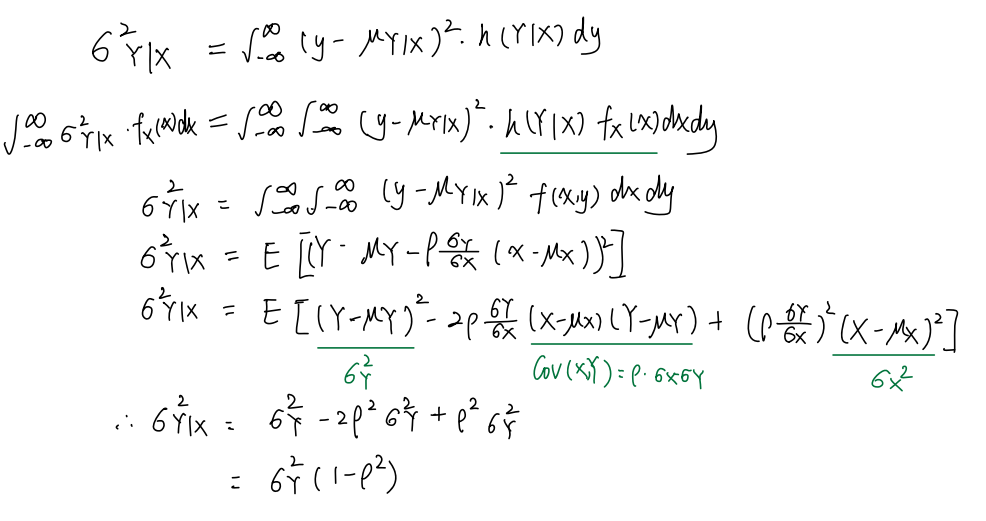 σ²Y|X = ∫_{-∞}^{∞} (y - μY|X)² · h(Y|X) dy
∫_{-∞}^{∞} σ²Y|X · fx(x)dx = ∫_{-∞}^{∞} ∫_{-∞}^{∞} (y - μY|X)² · h(Y|X) fx(x)dxdy
σ²Y|X = ∫_{-∞}^{∞} ∫_{-∞}^{∞} (y - μY|X)² f(x,y) dx dy
σ²Y|X = E [(Y - μY - ρ σY/σX (x - μx))²]
σ²Y|X = E [(Y - μY)² - 2ρ σY/σX (X - μx)(Y - μY) + (ρ σY/σX)² (X - μx)²]
σ²Y Cov(X,Y) = ρ · σXσY σX²
∴ σ²Y|X = σ²Y - 2ρ² σ²Y + ρ² σ²Y
= σ²Y (1 - ρ²)